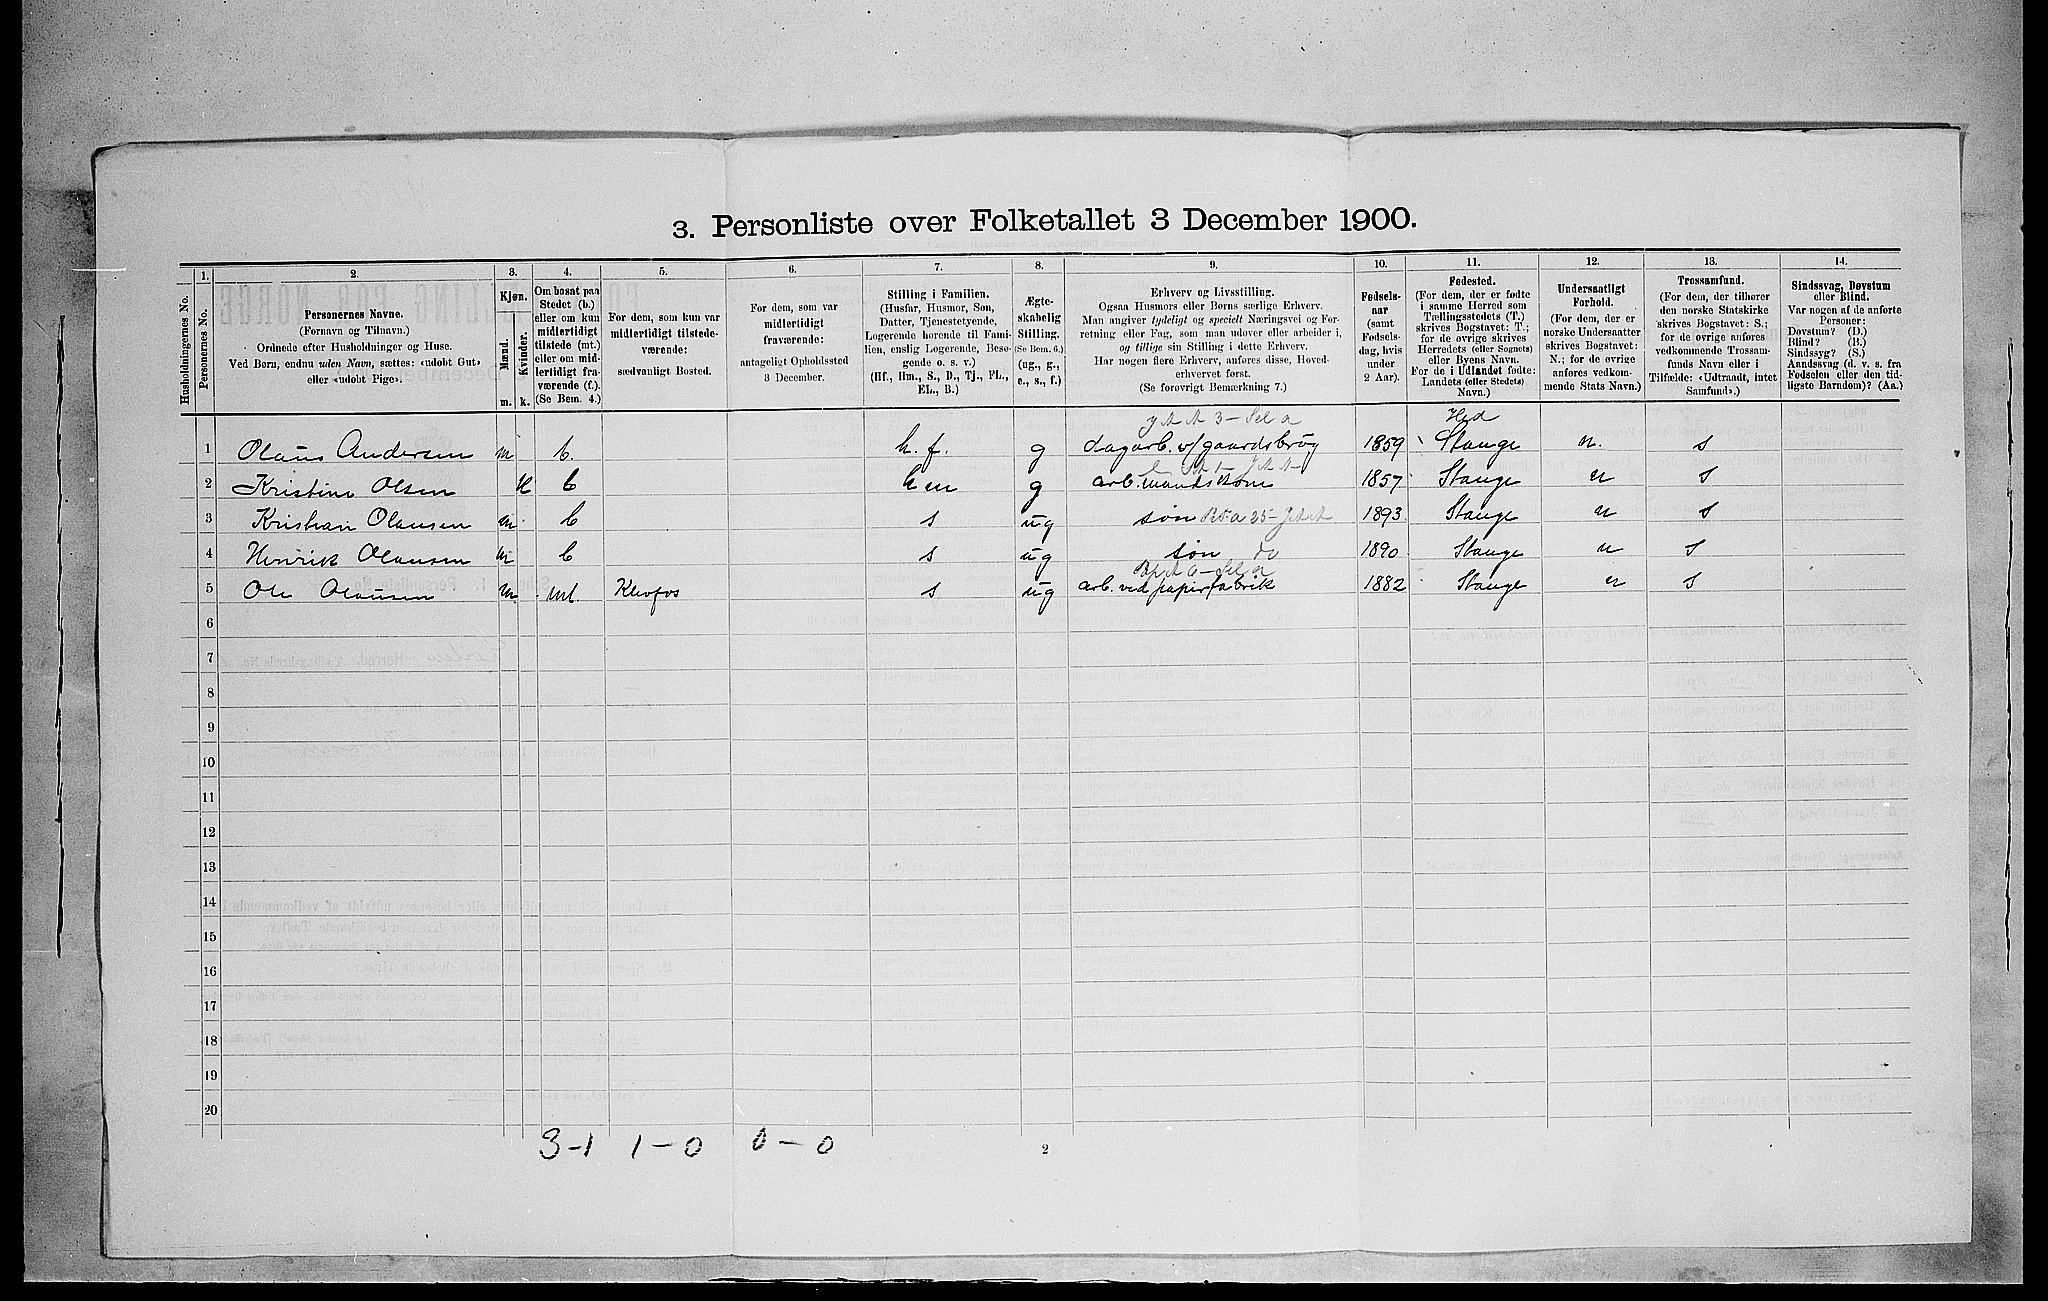 3. Personliste over Folketallet 3 December 1900.
Husholdningernes No.
1. Personernes No.
2. Personernes Navne. (Fornavn og Tilnavn.) Ordnede efter Husholdninger og Huse. Ved Børn, endnu uden Navn, sættes: «udobt Gut» eller «udobt Pige».
3. Kjøn. Mænd. m. Kvinder. k.
4. Om bosat paa Stedet (b.) eller om kun midlertidigt tilstede (mt.) eller om midlertidigt fraværende (f.). (Se Bem. 4.)
5. For dem, som kun var midlertidigt tilstedeværende: sædvanligt Bosted.
6. For dem, som var midlertidigt fraværende: antageligt Opholdssted 3 December.
7. Stilling i Familien. (Husfar, Husmor, Søn, Datter, Tjenestetyende, Logerende hørende til Familien, enslig Logerende, Besøgende o. s. v.) (Hf., Hm., S., D., Tj., FL., EL., B.)
8. Ægteskabelig Stilling. (Se Bem. 6.) (ug., g., e., s., f.)
9. Erhverv og Livsstilling. Ogsaa Husmors eller Børns særlige Erhverv. Man angiver tydeligt og specielt Næringsvei og Forretning eller Fag, som man udøver eller arbeider i, og tillige sin Stilling i dette Erhverv. Har nogen flere Erhverv, anføres disse, Hovederhvervet først. (Se forøvrigt Bemærkning 7.)
10. Fødselsaar (samt Fødselsdag, hvis under 2 Aar).
11. Fødested. (For dem, der er fødte i samme Herred som Tællingsstedets (T.) skrives Bogstavet: T.; for de øvrige skrives Herredets (eller Sognets) eller Byens Navn. For de i Udlandet fødte: Landets (eller Stedets) Navn.)
12. Undersaatligt Forhold. (For dem, der er norske Undersaatter skrives Bogstavet: N.; for de øvrige anføres vedkommende Stats Navn.)
13. Trossamfund. (For dem, der tilhører den norske Statskirke skrives Bogstavet: S.; for de øvrige anføres vedkommende Trossamfunds Navn eller i Tilfælde: «Udtraadt, intet Samfund».)
14. Sindssvag, Døvstum eller Blind. Var nogen af de anførte Personer: Døvstum? (D.) Blind? (B.) Sindssyg? (S.) Aandssvag (d. v. s. fra Fødselen eller den tidligste Barndom)? (Aa.)
Hed
1 Olaus Andersen m b. h. f. g dagarb. v/gaardsbrug 1859 Stange n. s
2 Kristine Olsen k b hm g arb.mandskone 1857 Stange n s
3 Kristian Olausen m b s ug søn 1893 Stange n s
4 Henrik Olausen m b s ug søn do 1890 Stange n s
5 Ole Olausen m mt. Klevfos s ug arb. ved papirfabrik 1882 Stange n s
6
7
8
9
10
11
12
13
14
15
16
17
18
19
20
3-1 1-0 0-0
2